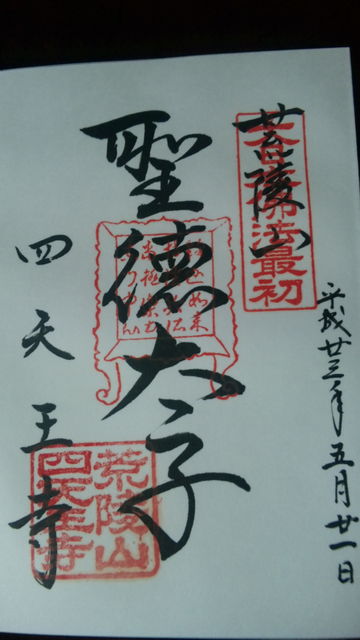 平成廿三年五月廿一日
荒陵山
大日本佛法最初
聖徳太子
四天王寺
荒陵山
四天王寺